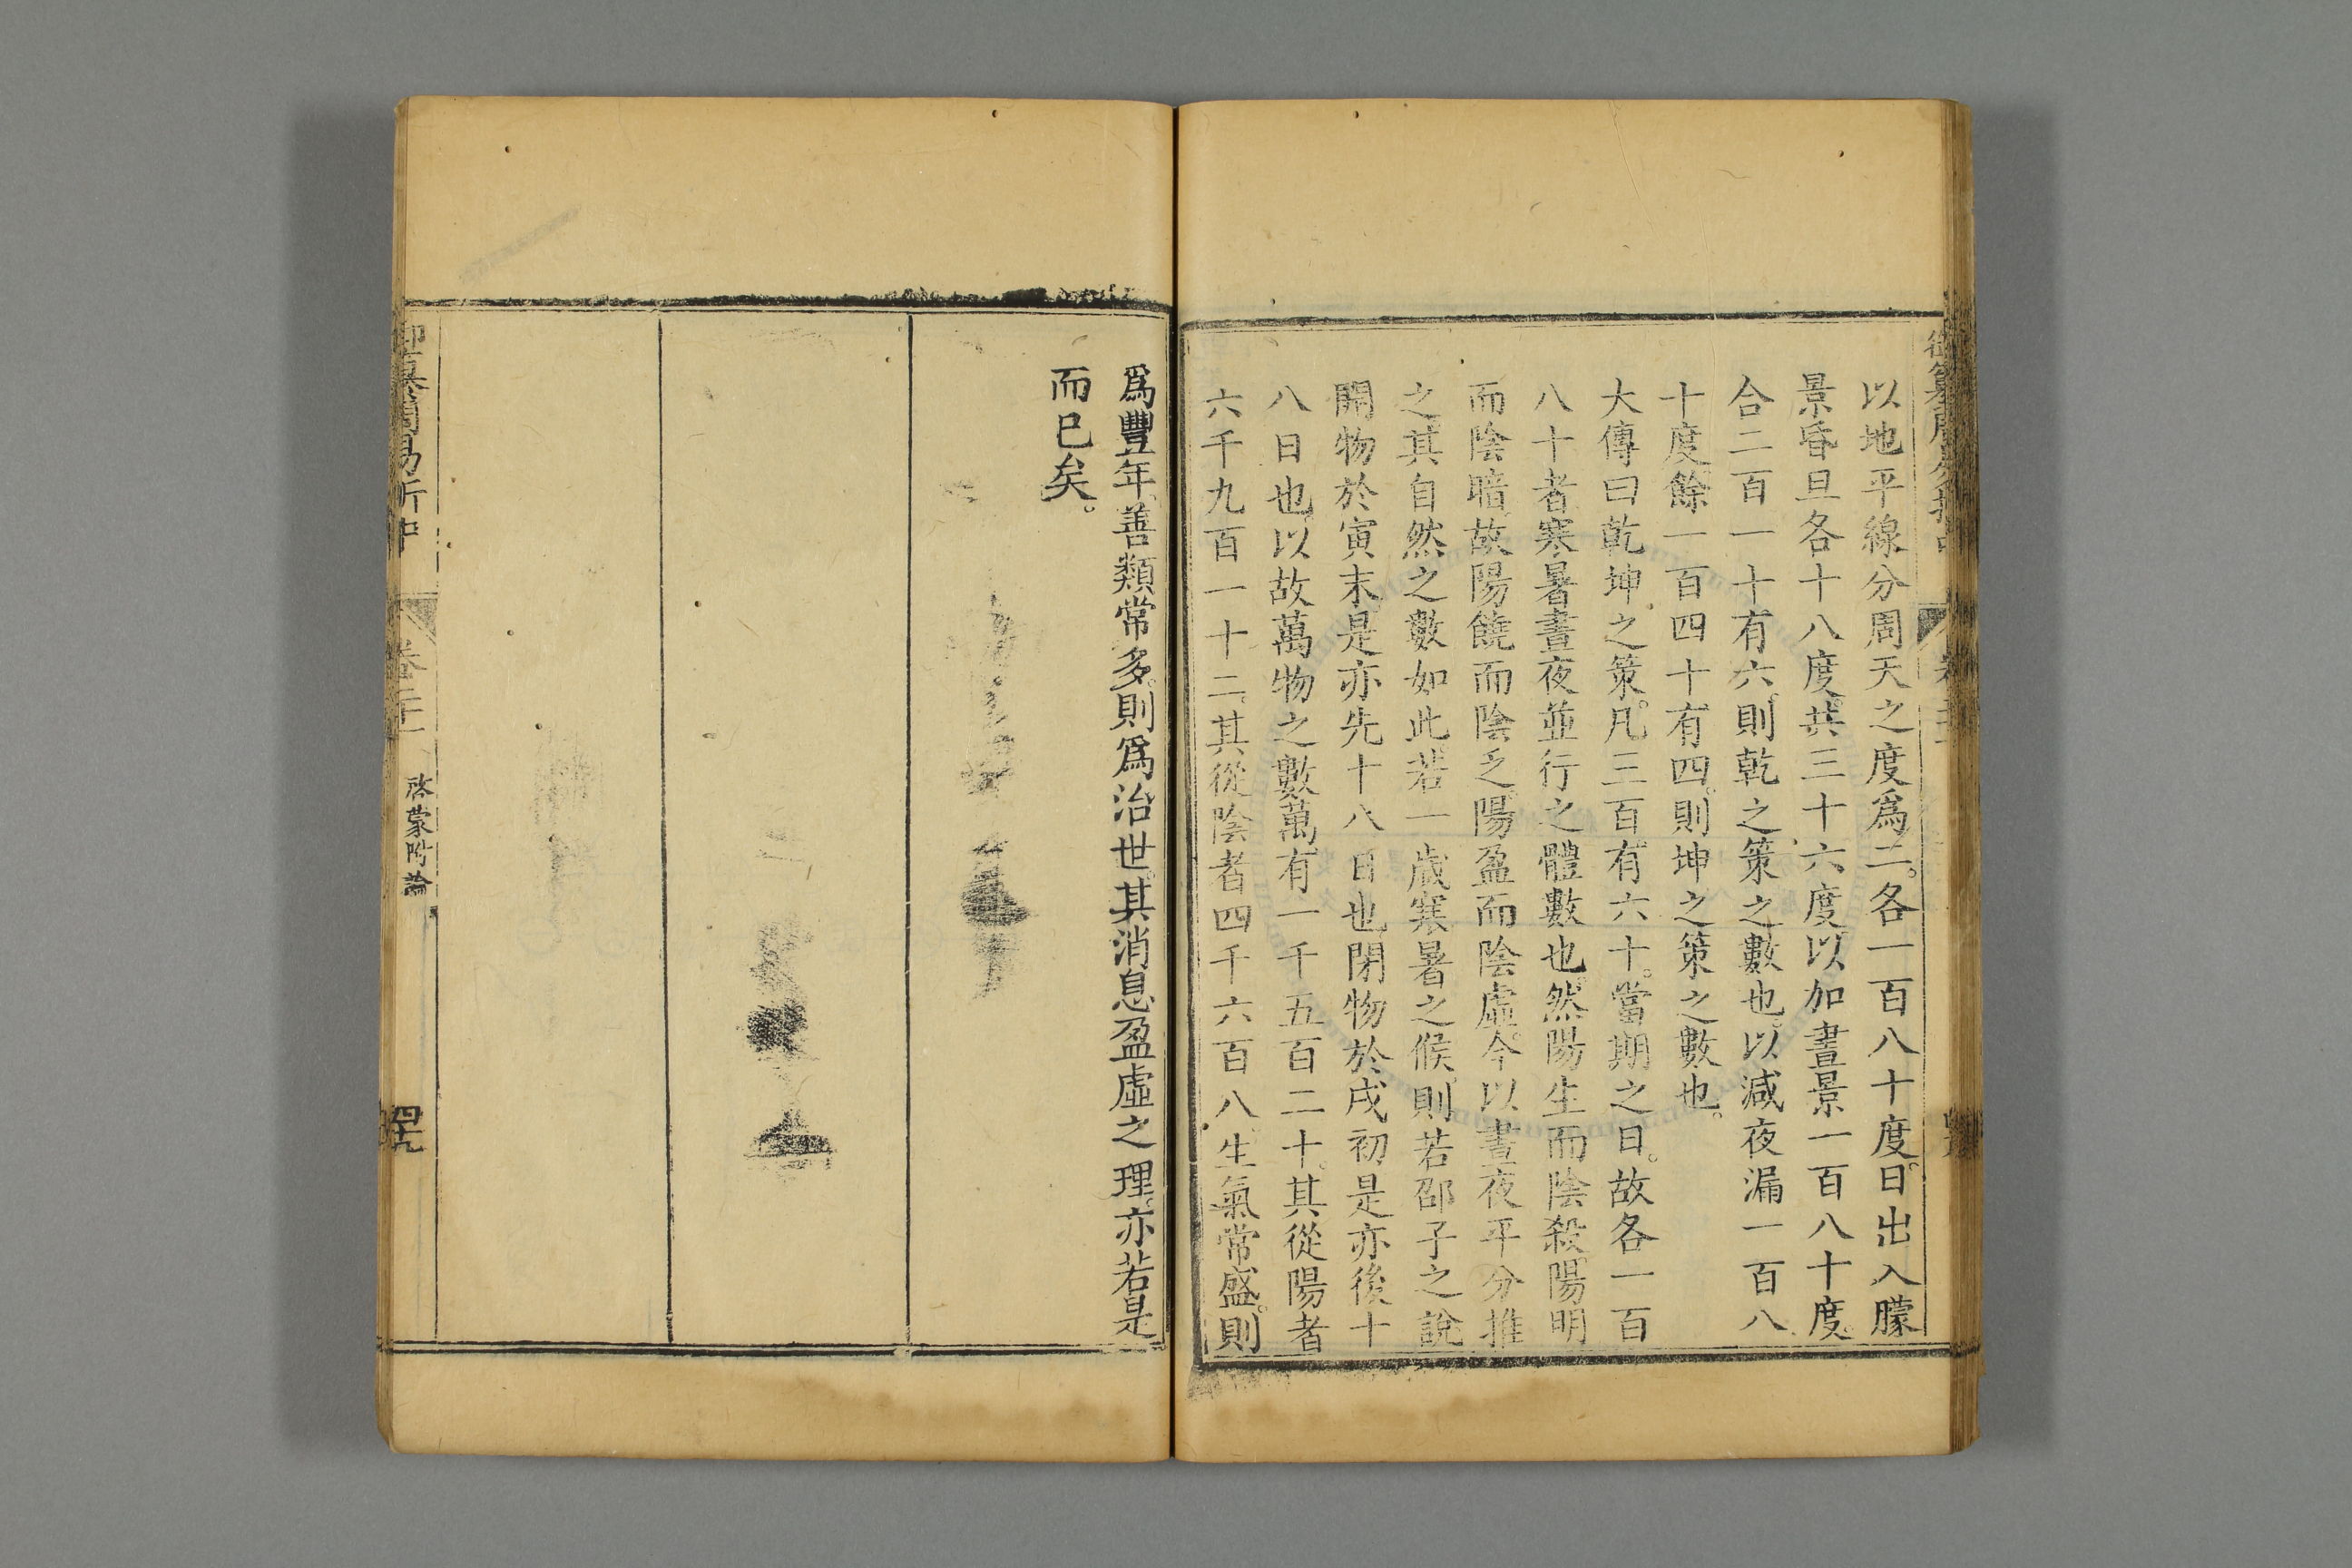 以地平線分周天之度爲二。各一百八十度。日出入朦
景昏旦各十八度。共三十六度以加晝景一百八十度。
合二百一十有六。則乾之策之數也。以減夜漏一百八
十度。餘一百四十有四。則坤之策之數也。
大傳曰乾坤之策。凡三百有六十。當期之日。故各一百
八十者寒暑晝夜並行之體數也。然陽生而陰殺。陽明
而陰暗。故陽饒而陰乏。陽盈而陰虛。今以晝夜平分推
之。其自然之數如此。若一歲寒暑之候。則若邵子之說
開物於寅末是亦先十八日也。閉物於戌初是亦後十
八日也。以故萬物之數萬有一千五百二十。其從陽者
六千九百一十二。其從陰者四千六百八。生氣常盛。則
爲豐年。善類常多。則爲治世。其消息盈虛之理。亦若是
而已矣。
御纂周易折中
卷二十一
啓蒙附論
四十九